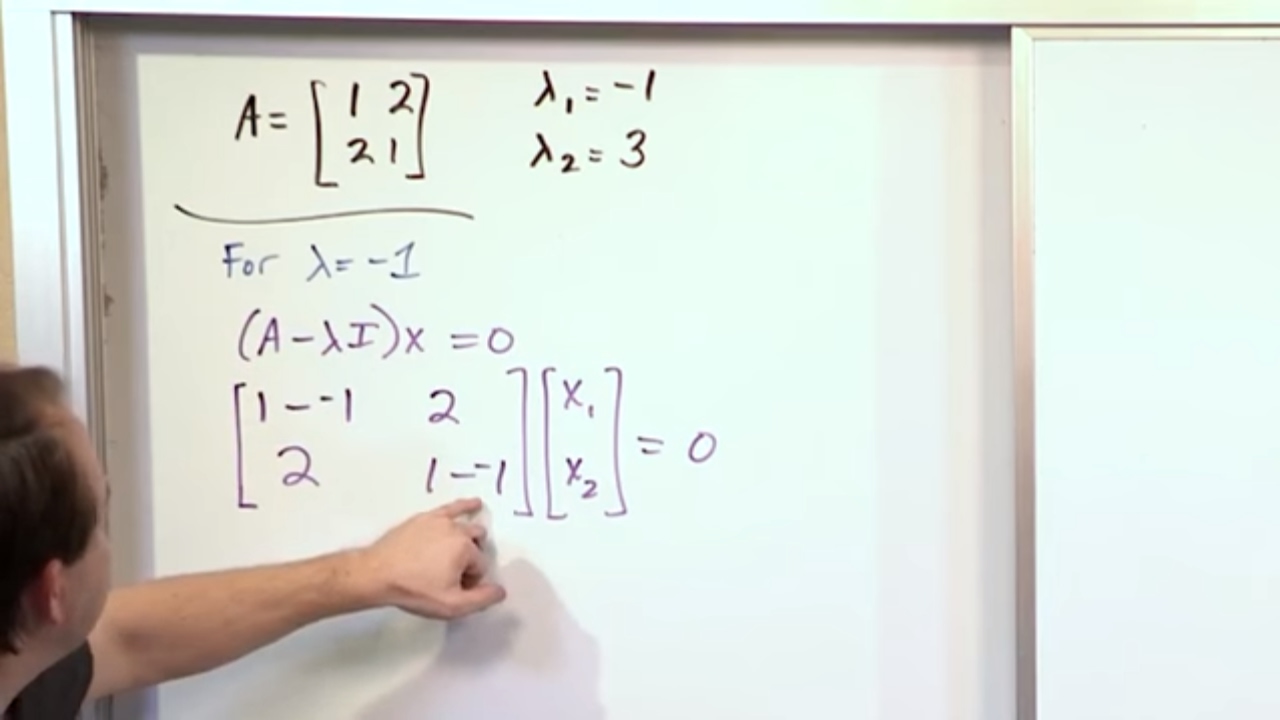 A = [1 2
2 1]
λ₁ = -1
λ₂ = 3
For λ = -1
(A - λI)x = 0
[1 - -1 2
2 1 - -1] [x₁
x₂] = 0